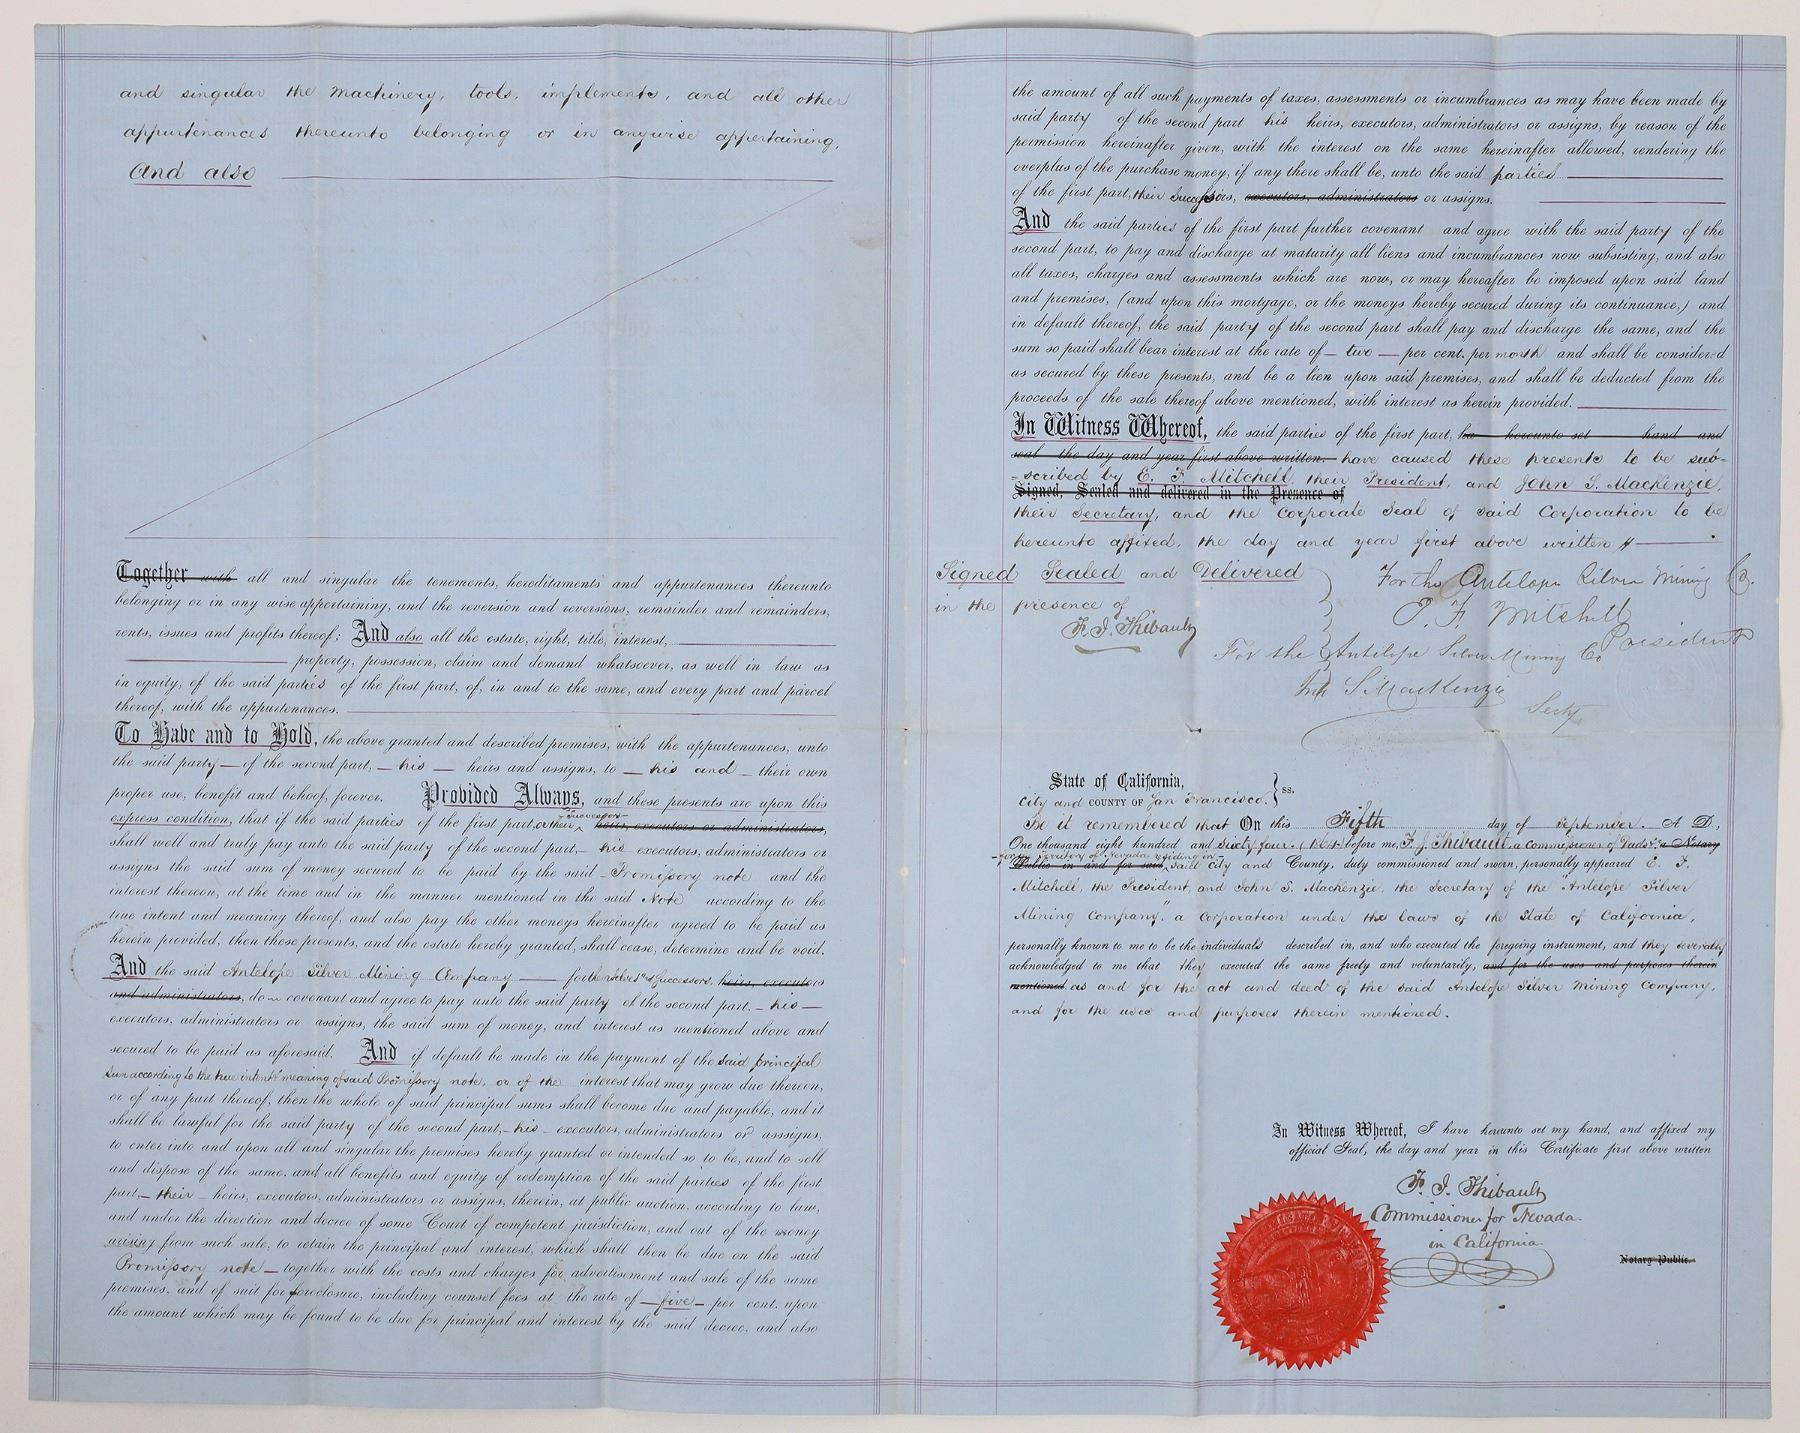 and singular the machinery, tools, implements, and all other
appurtenances thereunto belonging or in anywise appertaining,
And also
Together with all and singular the tenements, hereditaments and appurtenances thereunto
belonging or in any wise appertaining, and the reversion and reversions, remainder and remainders,
rents, issues and profits thereof: And also all the estate, right, title, interest,
property, possession, claim and demand whatsoever, as well in law as
in equity, of the said parties of the first part, of, in and to the same, and every part and parcel
thereof, with the appurtenances.
To Have and to Hold, the above granted and described premises, with the appurtenances, unto
the said party – of the second part, – his – heirs and assigns, to – his and – their own
proper use, benefit and behoof, forever. Provided Always, and these presents are upon this
express condition, that if the said parties of the first part, or their successors heirs, executors or administrators,
shall well and truly pay unto the said party of the second part, – his – executors, administrators or
assigns the said sum of money secured to be paid by the said – Promissory note and the
interest thereon, at the time and in the manner mentioned in the said Note according to the
true intent and meaning thereof, and also pay the other moneys hereinafter agreed to be paid as
herein provided, then these presents, and the estate hereby granted, shall cease, determine and be void.
And the said Antelope Silver Mining Company – for themselves & Successors, heirs, executors
and administrators, do covenant and agree to pay unto the said party of the second part, – his –
executors, administrators or assigns, the said sum of money, and interest as mentioned above and
secured to be paid as aforesaid. And if default be made in the payment of the said principal
sum according to the true intent & meaning of said Promissory note, or of the interest that may grow due thereon,
or of any part thereof, then the whole of said principal sums shall become due and payable, and it
shall be lawful for the said party of the second part, – his – executors, administrators or asssigns,
to enter into and upon all and singular the premises hereby granted or intended so to be, and to sell
and dispose of the same, and all benefits and equity of redemption of the said parties of the first
part, – their – heirs, executors, administrators or assigns, therein, at public auction, according to law,
and under the direction and decree of some Court of competent jurisdiction, and out of the money
arising from such sale, to retain the principal and interest, which shall then be due on the said
Promissory note – together with the costs and charges for advertisement and sale of the same
premises, and of suit for foreclosure, including counsel fees at the rate of – five – per cent. upon
the amount which may be found to be due for principal and interest by the said decree, and also
the amount of all such payments of taxes, assessments or incumbrances as may have been made by
said party of the second part his heirs, executors, administrators or assigns, by reason of the
permission hereinafter given, with the interest on the same hereinafter allowed, rendering the
overplus of the purchase money, if any there shall be, unto the said parties
of the first part, their Successors, executors, administrators or assigns.
And the said parties of the first part further covenant and agree with the said party of the
second part, to pay and discharge at maturity all liens and incumbrances now subsisting, and also
all taxes, charges and assessments which are now, or may hereafter be imposed upon said land
and premises, (and upon this mortgage, or the moneys hereby secured during its continuance,) and
in default thereof, the said party of the second part shall pay and discharge the same, and the
sum so paid shall bear interest at the rate of – two – per cent. per month and shall be considered
as secured by these presents, and be a lien upon said premises, and shall be deducted from the
proceeds of the sale thereof above mentioned, with interest as herein provided.
In Witness Whereof, the said parties of the first part, ha hereunto set hand and
seal the day and year first above written. have caused these presents to be sub-
-scribed by E. F. Mitchell, their President, and John S. Mackenzie,
Signed, Sealed and delivered in the Presence of
their Secretary, and the Corporate Seal of said Corporation to be
hereunto affixed, the day and year first above written
Signed Sealed and Delivered
in the presence of
F. J. Thibault
For the Antelope Silver Mining Co.
E. F. Mitchell
President
For the Antelope Silver Mining Co
Jno S. MacKenzie
Secty
State of California,
City and COUNTY OF San Francisco. ss.
Be it remembered that On this Fifth day of September. A. D,
One thousand eight hundred and sixty four. (1864) before me, F. J. Thibault, a Commissioner of Deeds & a Notary
for the Territory of Nevada residing in
Public in and for said, said City and County, duty commissioned and sworn, personally appeared E. F.
Mitchell, the President, and John S. Mackenzie, the Secretary of the "Antelope Silver
Mining Company," a Corporation under the laws of the State of California,
personally known to me to be the individuals described in, and who executed the foregoing instrument, and they severally
acknowledged to me that they executed the same freely and voluntarily, and for the uses and purposes therein
mentioned. as and for the act and deed of the said Antelope Silver Mining Company,
and for the uses and purposes therein mentioned.
In Witness Whereof, I have hereunto set my hand, and affixed my
official Seal, the day and year in this Certificate first above written
F. J. Thibault
Commissioner for Nevada
in California.
Notary Public.